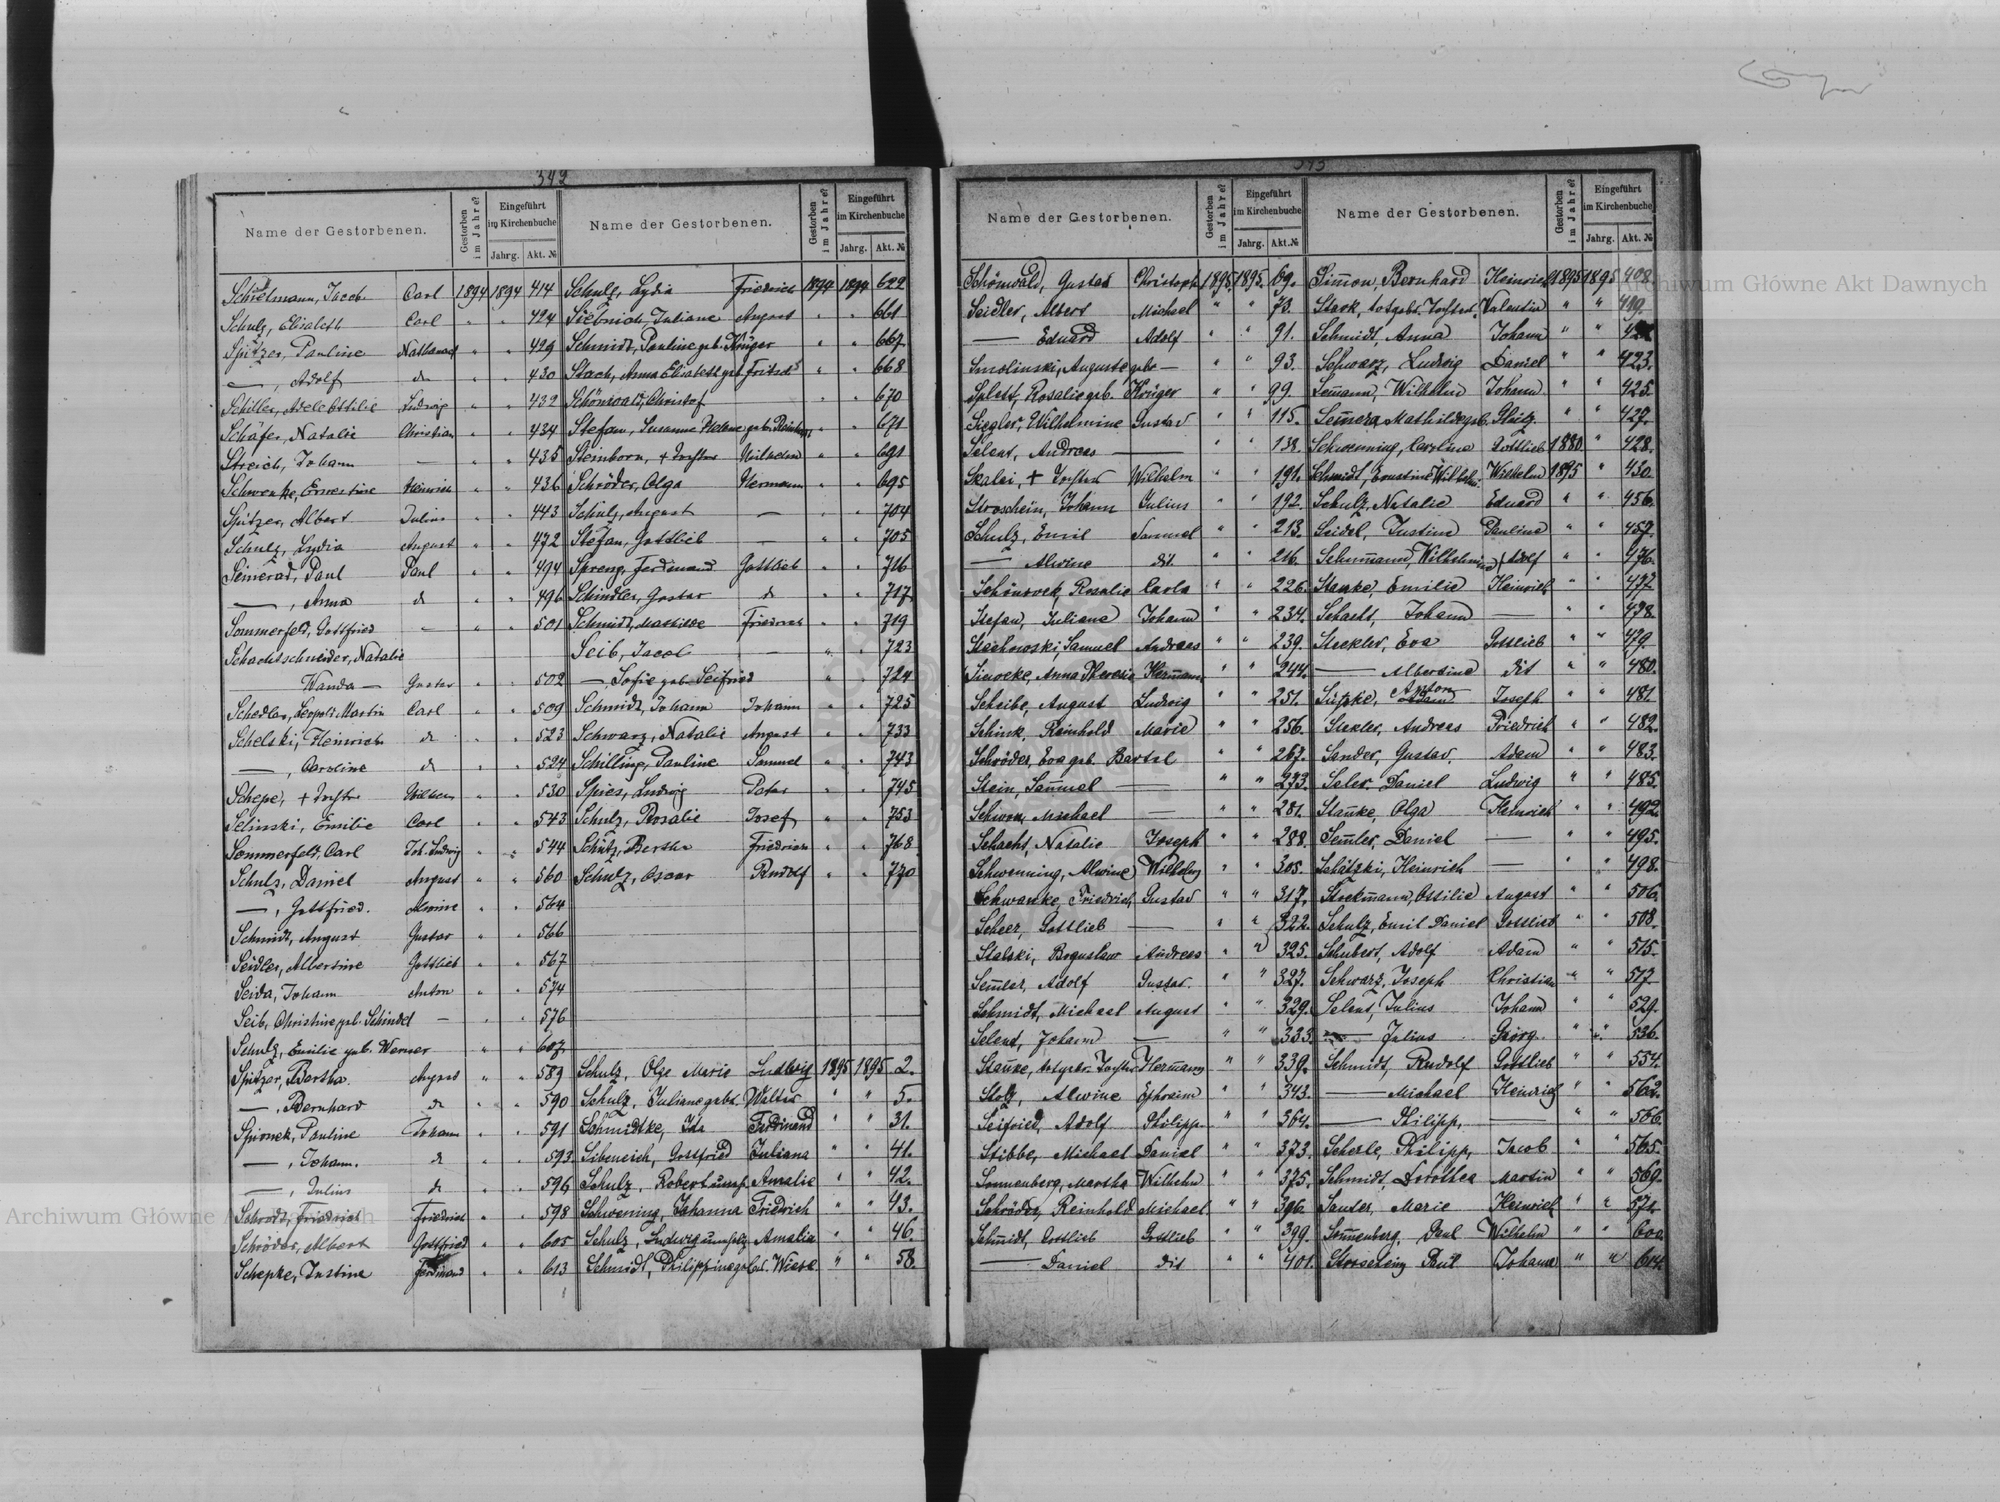 342
Name der Gestorbenen. Gestorben im Jahre? Eingeführt im Kirchenbuche Jahrg. Akt. №
Schielmann, Jacob Carl 1894 1894 414
Schulz, Elisabeth Carl " " 424
Spitzer, Pauline Nathanael " " 429
—, Adolf do " " 430
Schiller, Adele Ottilie Ludwig " " 432
Schäfer, Natalie Christian " " 434
Streich, Johann — " " 435
Schwenke, Ernestine Heinrich " " 436
Spitzer, Albert Julius " " 443
Schulz, Lydia August " " 472
Seinerad, Paul Paul " " 494
—, Anna do " " 496
Sommerfeld, Gottfried — " " 501
Schachtschneider, Natalie
Wanda — Gustav " " 502
Schedler, Leopold Martin Carl " " 509
Schelski, Heinrich do " " 523
—, Caroline do " " 524
Schepe, + Tochter Wilhelm " " 530
Selinski, Emilie Carl " " 543
Sommerfeld, Carl Joh. Ludwig " " 544
Schulz, Daniel August " " 560
—, Gottfried. Alwine " " 564
Schmidt, August Gustav " " 566
Seidler, Albertine Gottlieb " " 567
Seida, Johann Anton " " 574
Seib, Christine geb. Schindel — " " 576
Schulz, Emilie geb. Werner " " 607
Spitzer, Bertha. August " " 589
—, Bernhard do " " 590
Spionek, Pauline Johann " " 591
—, Johann. do " " 593
—, Julius do " " 596
Schrodt, Friedrich Friedrich " " 598
Schröder, Albert Gottfried " " 605
Schepke, Justine Ferdinand " " 613
Name der Gestorbenen. Gestorben im Jahre? Eingeführt im Kirchenbuche Jahrg. Akt. №
Schulz, Lydia Friedrich 1894 1894 622
Siebnich, Juliane August " " 661
Schmidt, Pauline geb. Krüger " " 667
Stach, Anna Elisabeth geb. Fritsch " " 668
Schönwald, Christof " " 670
Stefan, Susanne Helene geb. " " 671
Steinborn, + Tochter Wilhelm " " 691
Schröder, Olga Hermann " " 695
Schulz, August — " " 704
Stefan, Gottlieb — " " 705
Spreng, Ferdinand Gottlieb " " 716
Schindler, Gustav do " " 717
Schmidt, Mathilde Friedrich " " 719
Seib, Jacob — " " 723
—, Sofie geb. Seifried " " 724
Schmidt, Johann Johann " " 725
Schwarz, Natalie August " " 733
Schilling, Pauline Samuel " " 743
Spies, Ludwig Peter " " 745
Schulz, Rosalie Josef " " 753
Schütz, Bertha Friedrich " " 768
Schulz, Oscar Rudolf " " 770
Schulz, Olga Marie Ludwig 1895 1895 2.
Schulz, Juliane gebr. Walter " " 5.
Schmidtke, Ida Ferdinand " " 31.
Sibeneich, Gottfried Juliana " " 41.
Schulz, Robert Amalie " " 42.
Schwening, Johanna Friedrich " " 43.
Schulz, Ludwig Amalia " " 46.
Schmidt, Philippine geb. Wiese " " 58.
Name der Gestorbenen. Gestorben im Jahre? Eingeführt im Kirchenbuche Jahrg. Akt. №
Schönwald, Gustav Christoph 1895. 1895. 69.
Seidler, Albert Michael " " 73.
— Eduard Adolf " " 91.
Smolinski, Auguste gebr — " " 93.
Splett, Rosalie geb. Krüger " " 99.
Siegler, Wilhelmine Gustav " " 115.
Selent, Andreas — " " 138.
Skalei, + Tochter Wilhelm " " 191.
Stroschein, Johann Julius " " 192.
Schulz, Emil Samuel " " 213.
— Alwine dit. " " 216.
Schönrock, Rosalie Carla " " 226.
Stefan, Juliana Johann " " 234.
Stachowski, Samuel Andreas " " 239.
Sieweke, Anna Theresie Hermann " " 244.
Scheibe, August Ludwig " " 251.
Schink, Reinhold Marie " " 256.
Schröder, Eva geb. Bartel " " 267.
Stein, Samuel — " " 273.
Schwon, Michael — " " 281.
Schacht, Natalie Joseph " " 288.
Schwenning, Alwine Wilhelm " " 305.
Schwanke, Friedrich Gustav " " 317.
Scheer, Gottlieb — " " 322.
Stalski, Boguslaw Andreas " " 325.
Semler, Adolf Gustav. " " 327.
Schmidt, Michael August " " 329.
Selent, Johann — " " 333.
Stanke, Tochter Hermann " " 339.
Stolz, Alwine Ephraim " " 343.
Seifried, Adolf Philipp " " 364.
Stibbe, Michael Daniel " " 373.
Sonnenberg, Martha Wilhelm " " 375.
Schröder, Reinhold Michael " " 396.
Schmidt, Gottlieb Gottlieb " " 399.
— Daniel dit " " 401.
Name der Gestorbenen. Gestorben im Jahre? Eingeführt im Kirchenbuche Jahrg. Akt. №
Simon, Bernhard Heinrich 1895 1895 408.
Stark, totgeb. Tochter. Valentin " " 419.
Schmidt, Anna Johann " "
Schwarz, Ludwig Daniel " " 423.
Semann, Wilhelm Johann " " 425.
Semera, Mathilde geb. " " 427.
Schwenning, Carolina Gottlieb 1880 " 428.
Schmidt, Ernestine Wilhelm. Wilhelm 1895 " 430.
Schulz, Natalie Eduard " " 456.
Seidel, Justine Pauline " " 457.
Schumann, Wilhelmine Adolf " " 476.
Stanke, Emilie Heinrich " " 477
Schacht, Johann — " " 478.
Steckler, Eva Gottlieb " " 479.
— Albertine dit " " 480.
Süpke, Anton Joseph " " 481.
Stekler, Andreas Friedrich " " 482.
Sander, Gustav. Adam " " 483.
Seler, Daniel Ludwig " " 485.
Stanke, Olga Heinrich " " 492.
Semler, Daniel — " " 495.
Schatzki, Heinrich — " " 498.
Stockmann, Ottilie August " " 506.
Schulz, Emil Daniel Gottlieb " " 508.
Schubert, Adolf Adam " " 515.
Schwarz, Joseph Christian " " 517.
Selent, Julius Johann " " 529.
— Julius Georg. " " 536.
Schmidt, Rudolf Gottlieb " " 554.
— Michael Heinrich " " 562.
— Philipp, — " " 566.
Scherle, Philipp, Jacob " " 565.
Schmidt, Dorothea Martin " " 569.
Sauter, Marie Heinrich " " 571.
Sonnenberg, Paul Wilhelm " " 600.
Stroschein, Paul Johann " " 614.
Archiwum Główne Akt Dawnych
Archiwum Główne Akt Dawnych